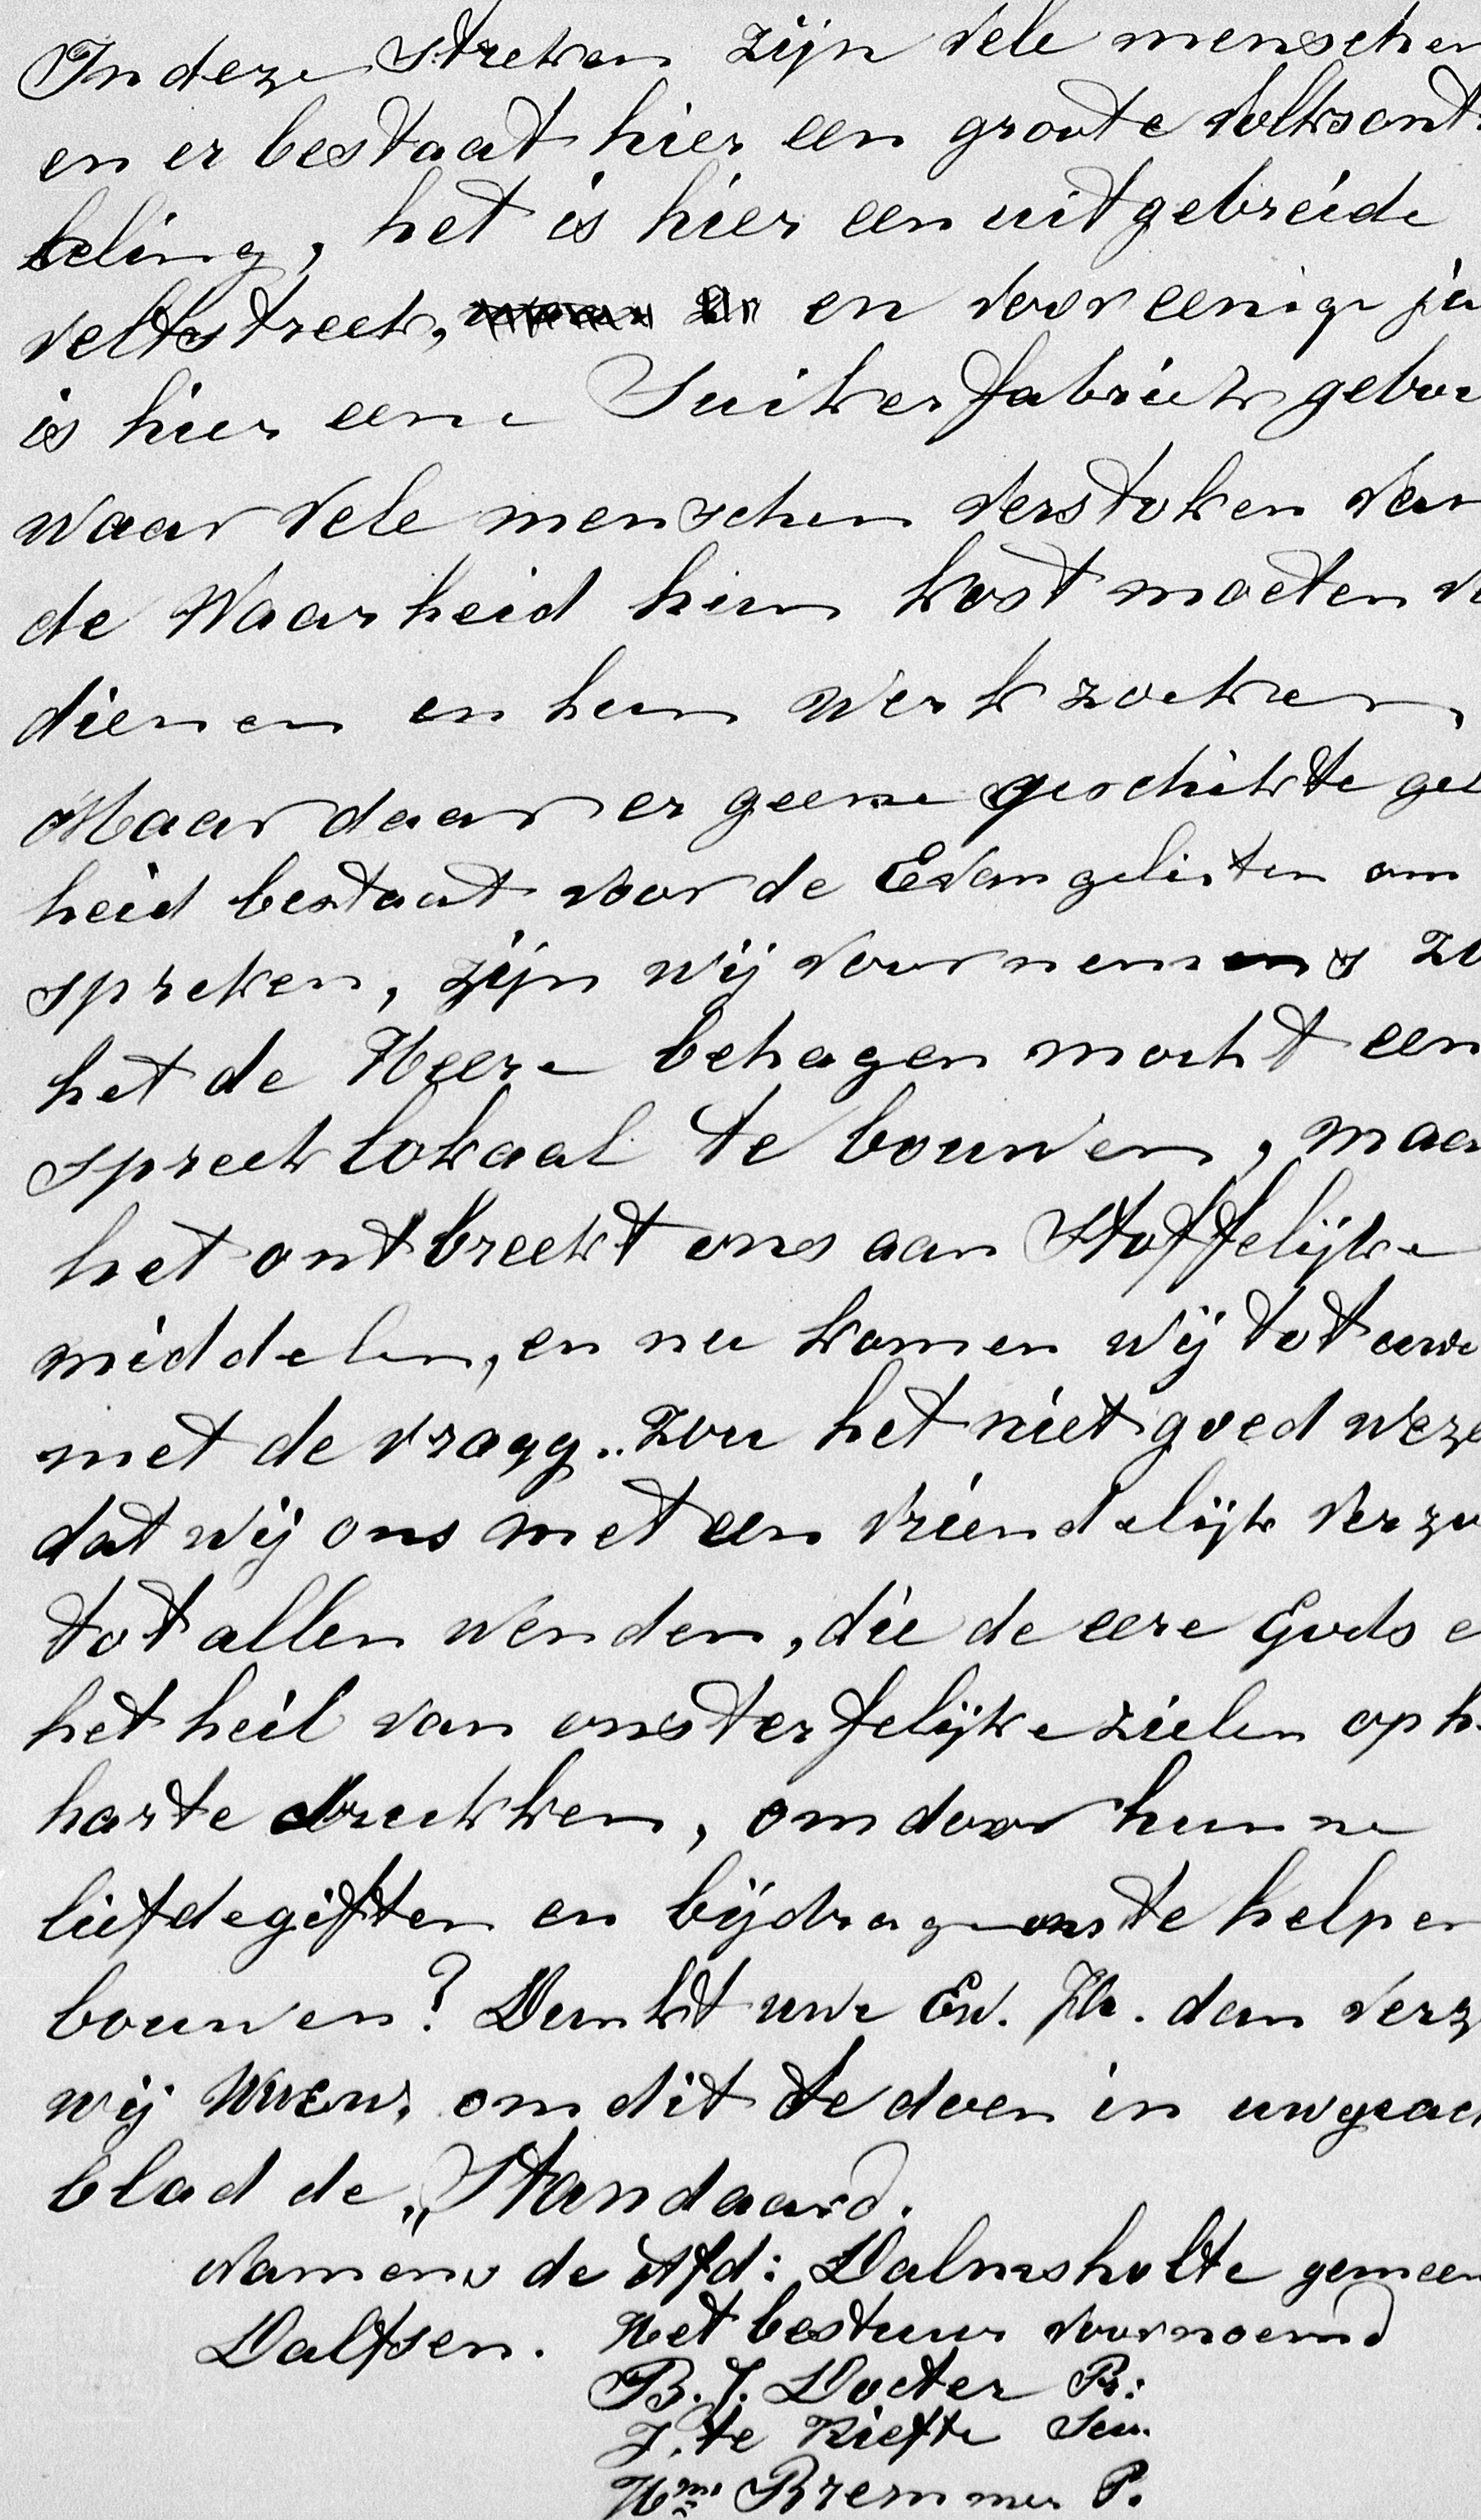 In deze streken zijn vele menschen
en er bestaat hier een groote volksont
beling, het is hier een uitgebreide
veltstreek, en voor eenige ja
is hier eene Suikerfabriek gebou
waar vele menschen verstoken van
de Waarheid hun kost moeten ve
dienen en hun werk zoeken,
Maar daar er geene geschikte gel
heid bestaat voor de Evangelisten om
spreken, zijn wij voornemens zo
het de Heere behagen mocht een
spreeklokaal te bouwen, maar
het ontbreekt ons aan Stoffelijke
middelen, en nu komen wij tot uw
met de vraag.. zou het niet goed weze
dat wij ons met een vriendelijk verzo
tot allen wenden, die de eere Gods e
het heil van onsterfelijke zielen op h
harte drukken, om door hunne
liefdegiften en bijdragen ons te helpen
bouwen? Dunkt uwe Ew. dan verz
wij om dit te doen in uw geach
blad de „Standaard.
Namens de Afd: Dalmsholte gemeen
Dalfsen. Het bestuur voornoemd
B. J. Docter Pr:
J. te Kiefte Sec.
Hm Bremmer P.